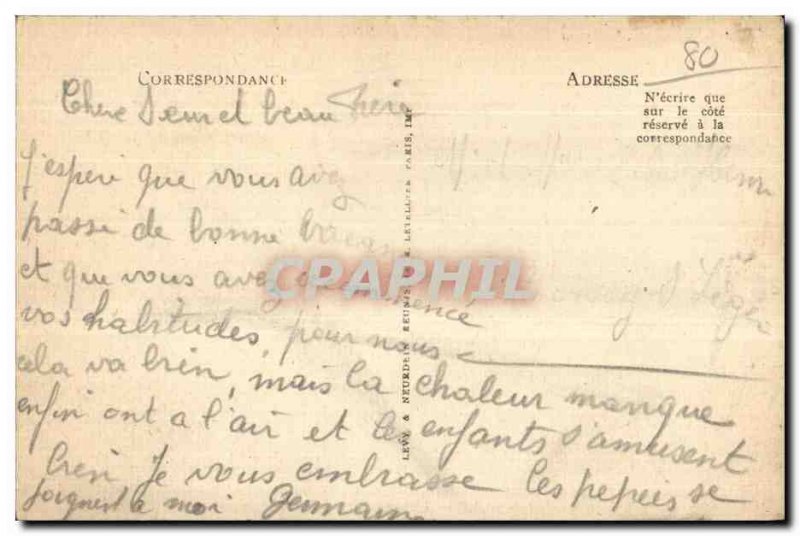 80
CORRESPONDANCE
ADRESSE
N'écrire que
sur le côté
réservé à la
correspondance
Chere Soeur et beau Frère
J'espere que vous avez
passé de bonne Vacan
et que vous avez recommencé
vos habitudes, pour nous
cela va bien, mais la chaleur manque
enfin ont a l'air et les enfants s'amusent
bien Je vous embrasse les pepees se
joignent a moi Germaine
LEVY & NEURDEIN REUNIS, LETELLIER PARIS, IMP
St Léger
CPARHIL